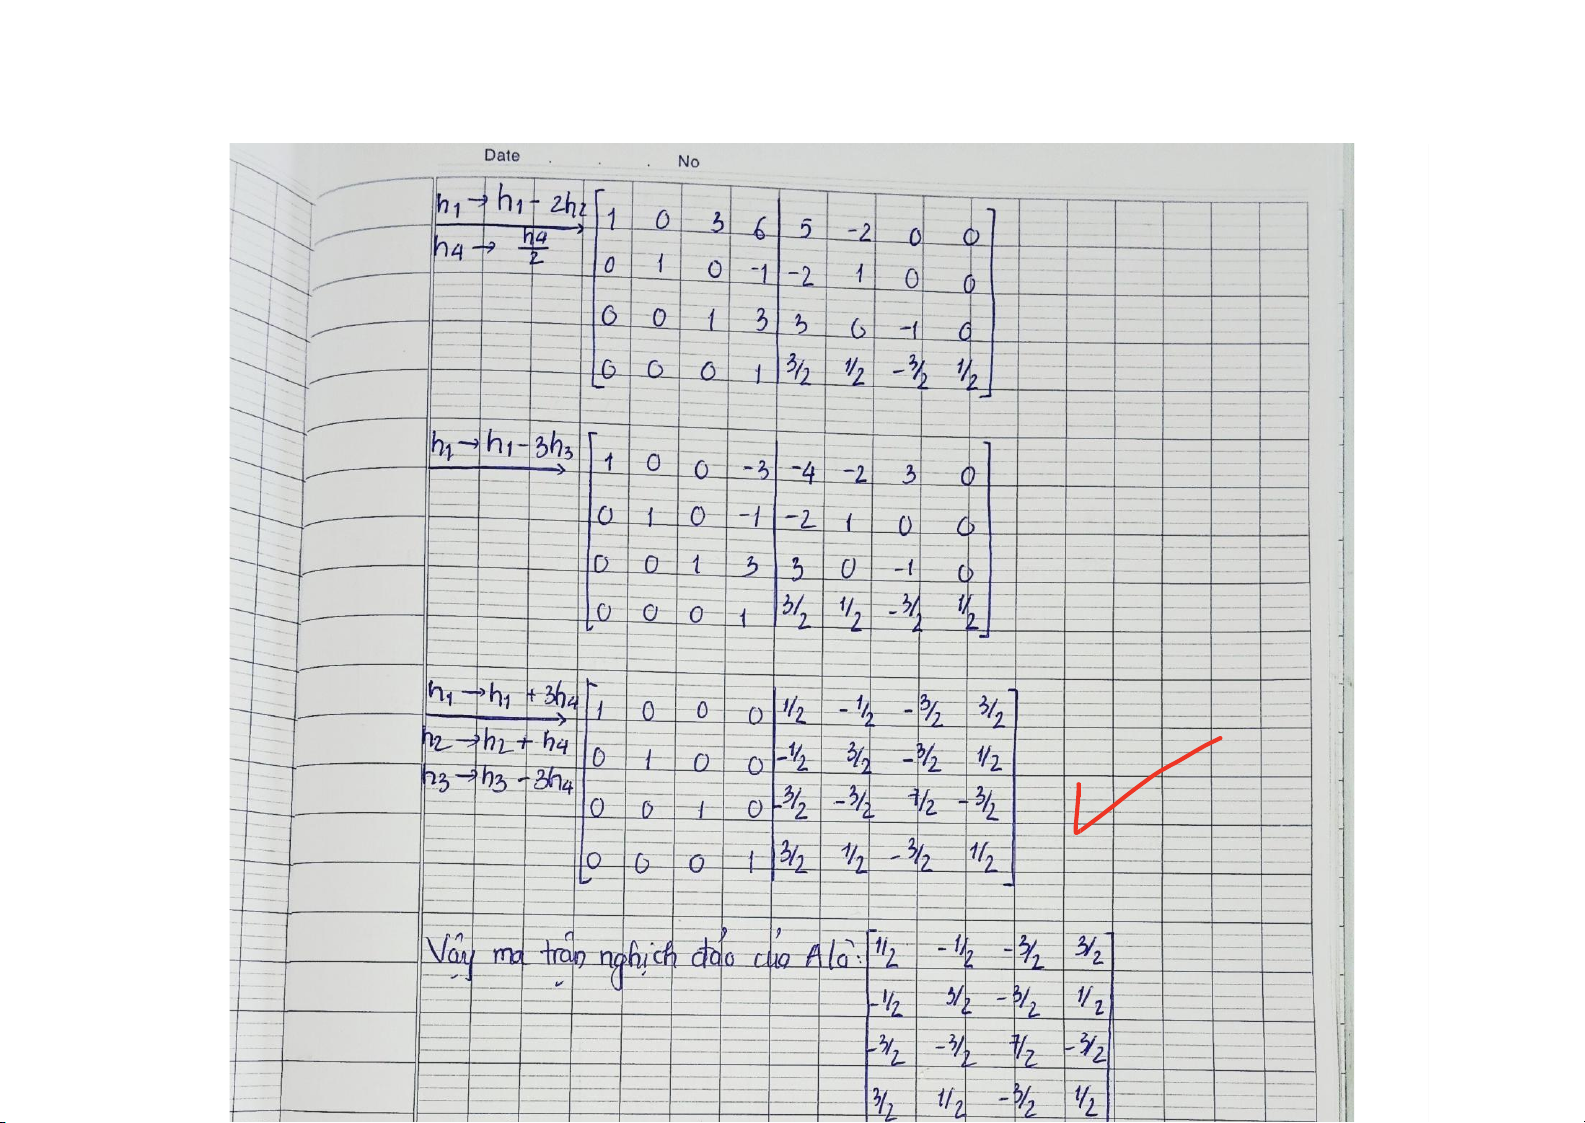 Date . . . No
h1 → h1 - 2h2 [ 1 0 3 6 | 5 -2 0 0 ]
h4 → h4/2 [ 0 1 0 -1 | -2 1 0 0 ]
[ 0 0 1 3 | 3 0 -1 0 ]
[ 0 0 0 1 | 3/2 1/2 -3/2 1/2 ]
h1 → h1 - 3h3 [ 1 0 0 -3 | -4 -2 3 0 ]
[ 0 1 0 -1 | -2 1 0 0 ]
[ 0 0 1 3 | 3 0 -1 0 ]
[ 0 0 0 1 | 3/2 1/2 -3/2 1/2 ]
h1 → h1 + 3h4 [ 1 0 0 0 | 1/2 -1/2 -3/2 3/2 ]
h2 → h2 + h4 [ 0 1 0 0 | -1/2 3/2 -3/2 1/2 ]
h3 → h3 - 3h4 [ 0 0 1 0 | -3/2 -3/2 7/2 -3/2 ]
[ 0 0 0 1 | 3/2 1/2 -3/2 1/2 ]
Vậy ma trận nghịch đảo của A là: [ 1/2 -1/2 -3/2 3/2 ]
[ -1/2 3/2 -3/2 1/2 ]
[ -3/2 -3/2 7/2 -3/2 ]
[ 3/2 1/2 -3/2 1/2 ]